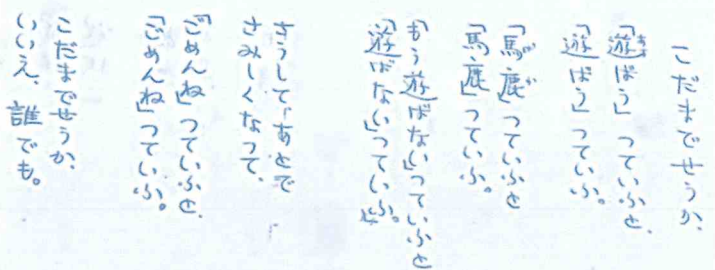 こだまでせうか、
「遊ばう」つていふと、
「遊ばう」つていふ。
「馬鹿」つていふと
「馬鹿」つていふ。
「もう遊ばない」つていふと
「遊ばない」つていふ。
さうして、あとで
さみしくなつて、
「ごめんね」つていふと、
「ごめんね」つていふ。
こだまでせうか、
いいえ、誰でも。